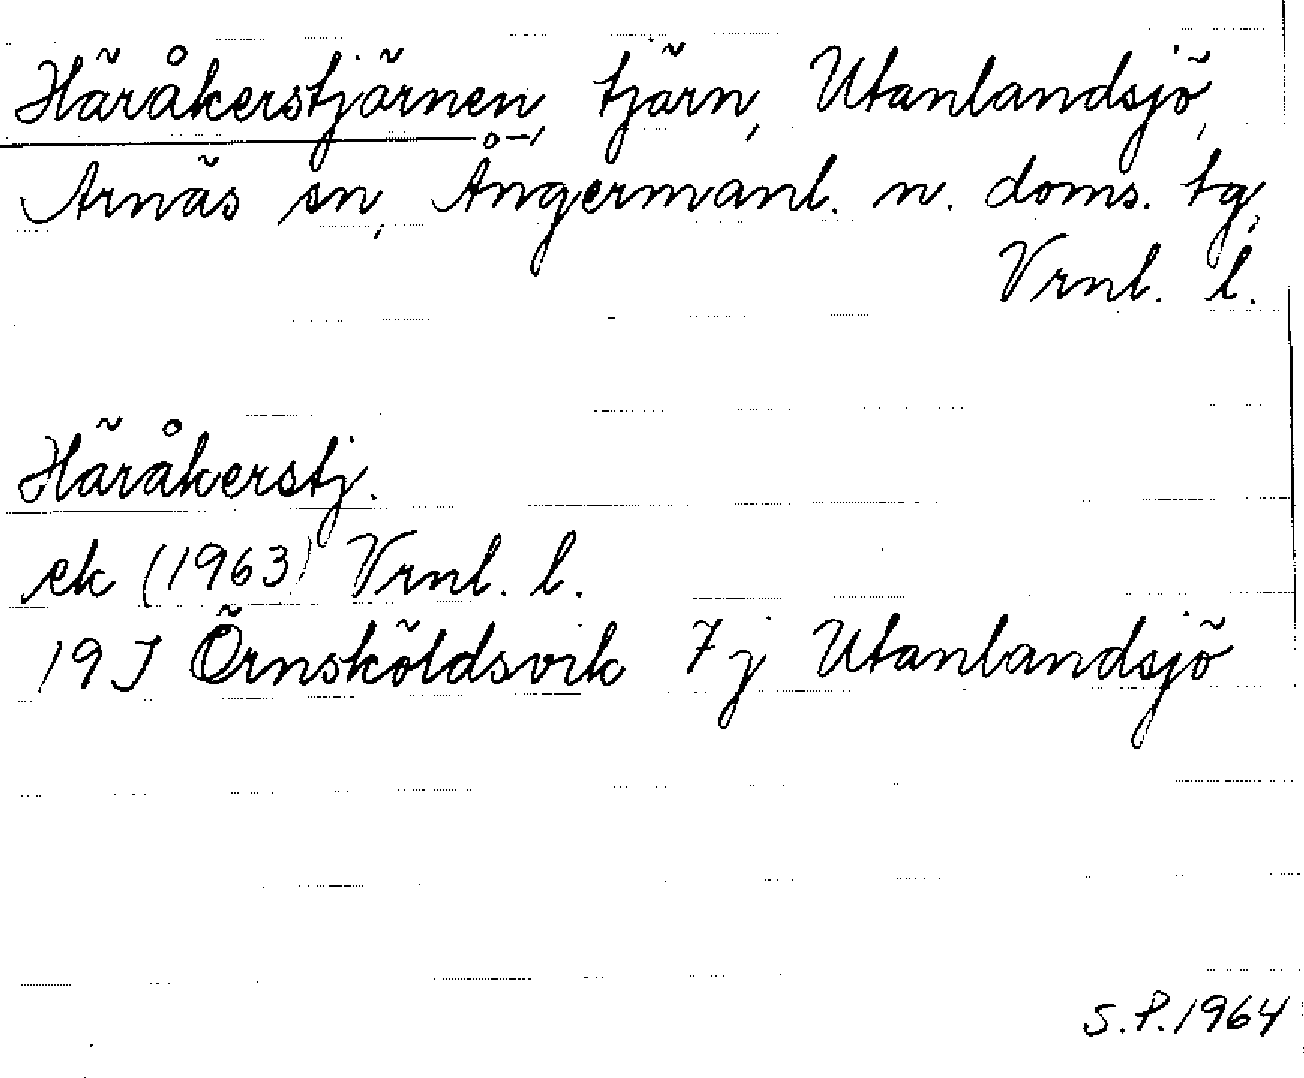 Häråkerstjärnen, tjärn, Utanlandsjö,
Arnäs sn, Ångermanl. n. doms. tg,
Vrnl. l.
Häråkerstj.
ek (1963) Vrnl. l.
19J Örnsköldsvik 7j Utanlandsjö
S.P.1964